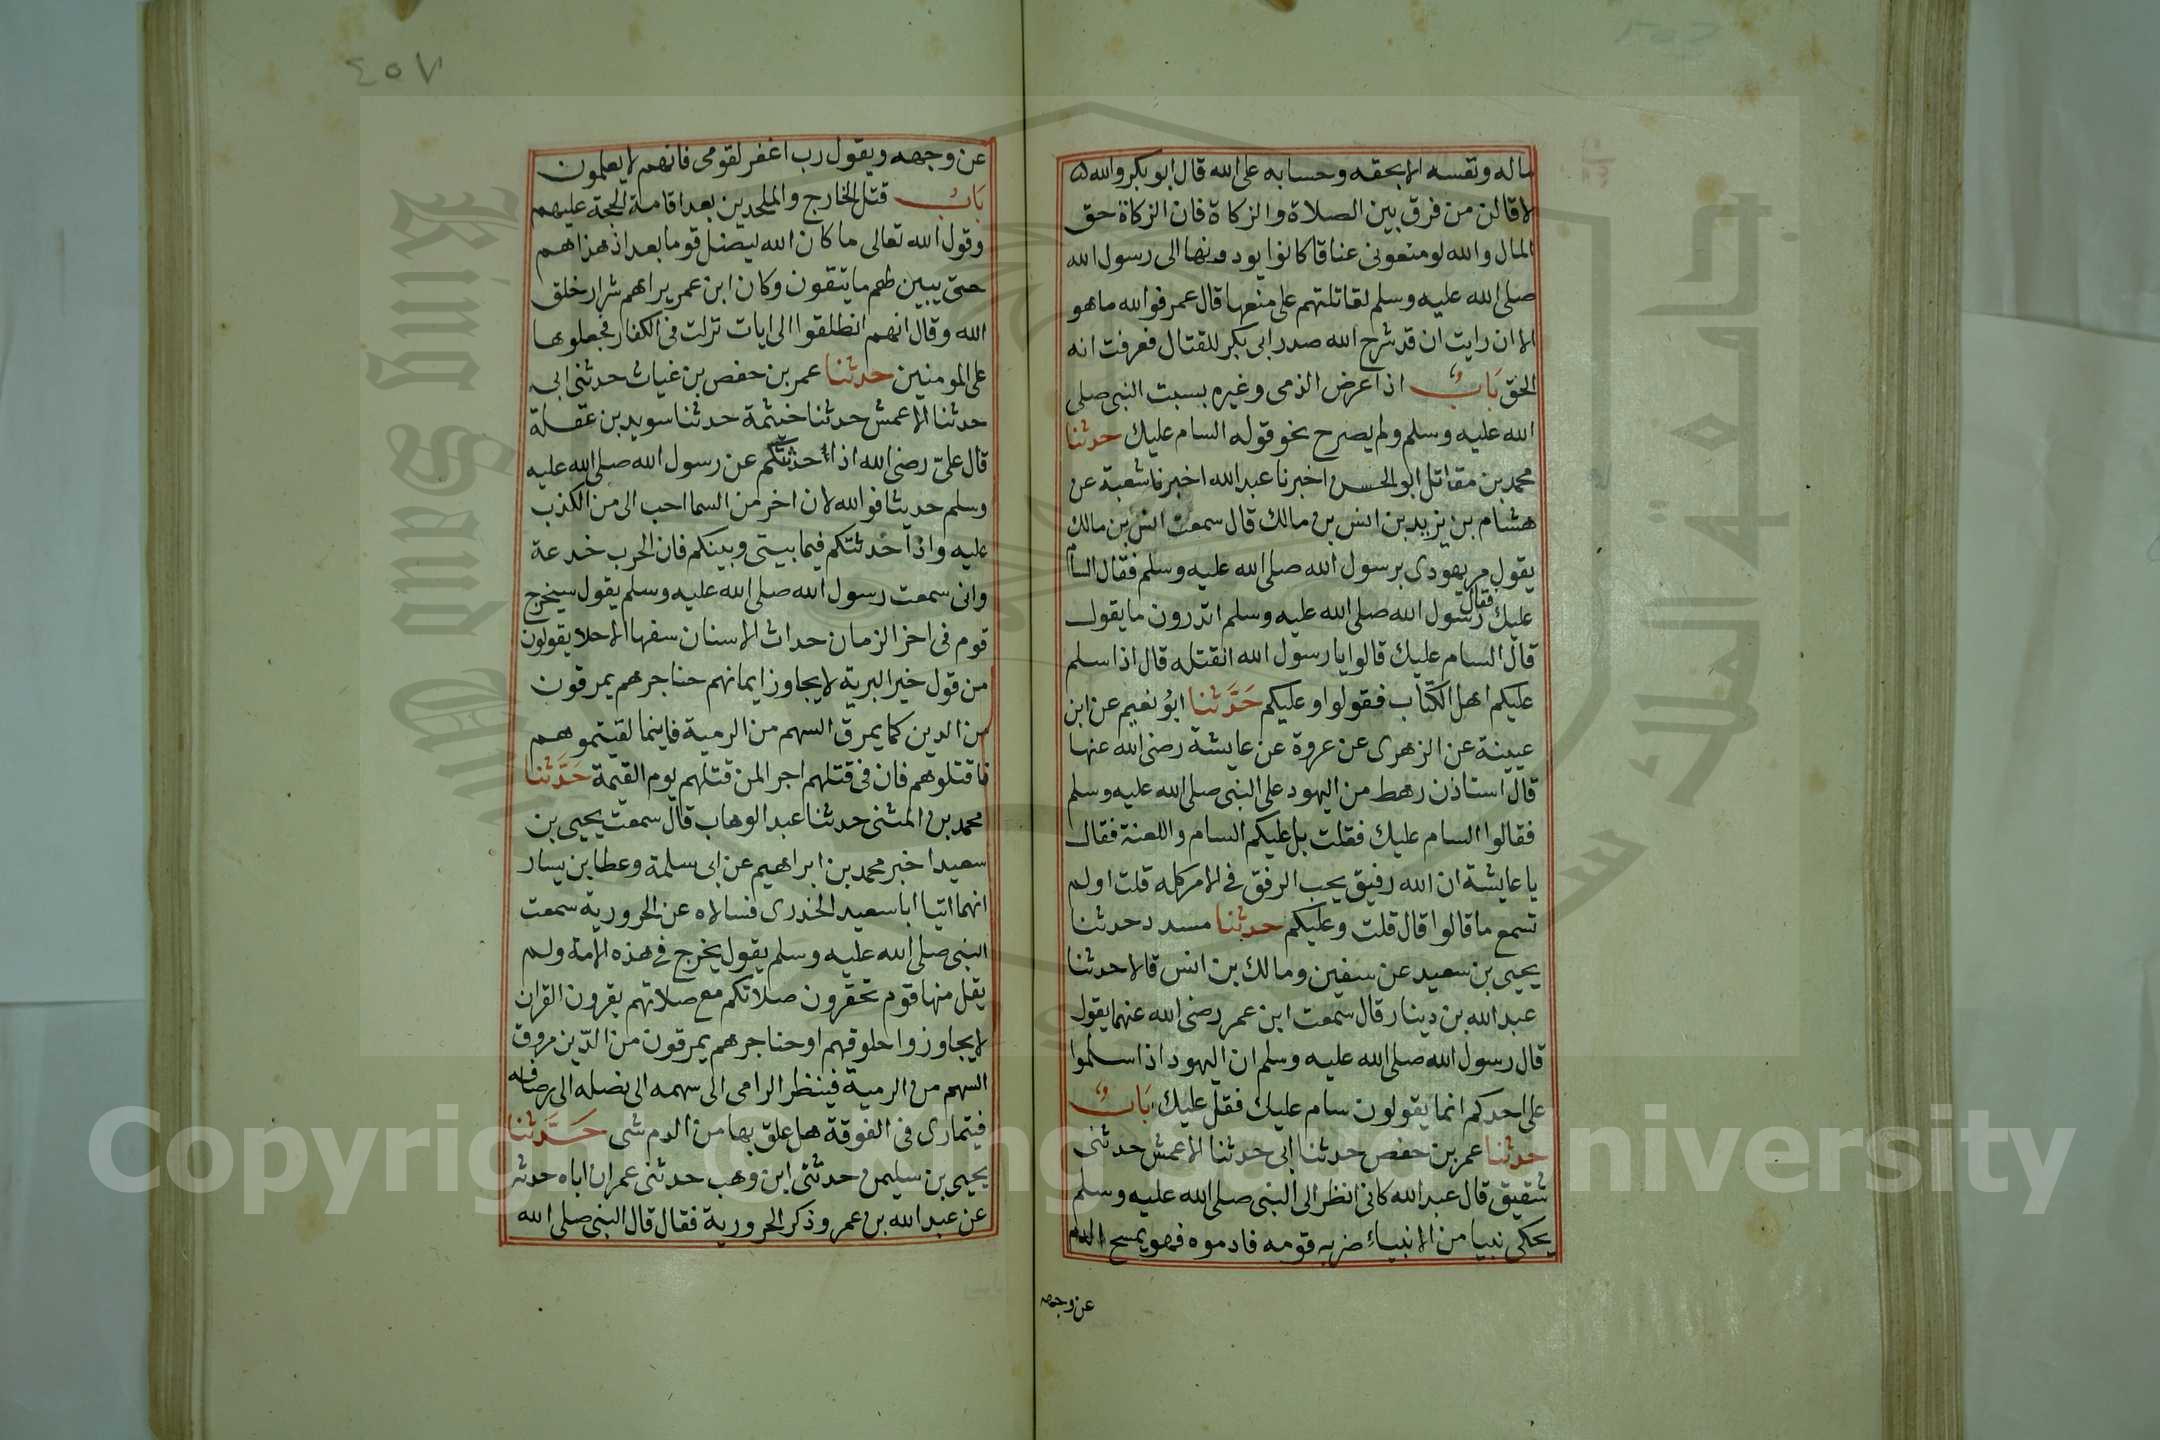 ماله ونفسه الا بحقه وحسابه على الله قال ابو بكر والله
لاقاتلن من فرق بين الصلاة والزكاة فان الزكاة حق
المال والله لو منعونى عناقا كانوا يودونها الى رسول الله
صلى الله عليه وسلم لقاتلتهم على منعها قال عمر فوالله ما هو
الا ان رايت ان قد شرح الله صدر ابى بكر للقتال فعرفت انه
الحق باب اذا عرض الذمى وغيره بسبت النبى صلى
الله عليه وسلم ولم يصرح نحو قوله السام عليك حدثنا
محمد بن مقاتل ابو الحسن اخبرنا عبد الله اخبرنا شعبة عن
هشام بن يزيد بن انس بن مالك قال سمعت انس بن مالك
يقول مر يهودى برسول الله صلى الله عليه وسلم فقال السام
عليك فقال رسول الله صلى الله عليه وسلم اتدرون ما يقول
قال السام عليك قالوا يا رسول الله انقتله قال اذا سلم
عليكم اهل الكتاب فقولوا وعليكم حدثنا ابو نعيم عن ابن
عيينة عن الزهرى عن عروة عن عايشة رضى الله عنها
قال استاذن رهط من اليهود على النبى صلى الله عليه وسلم
فقالوا السام عليك فقلت بل عليكم السام واللعنة فقال
يا عايشة ان الله رفيق يحب الرفق فى الامر كله قلت اولم
تسمع ما قالوا قال قلت وعليكم حدثنا مسدد حدثنا
يحيى بن سعيد عن سفين ومالك بن انس قالا حدثنا
عبد الله بن دينار قال سمعت ابن عمر رضى الله عنهما يقول
قال رسول الله صلى الله عليه وسلم ان اليهود اذا سلموا
على احدكم انما يقولون سام عليك فقل عليك باب
حدثنا عمر بن حفص حدثنا ابى حدثنا الاعمش حدثنى
شقيق قال عبد الله كانى انظر الى النبى صلى الله عليه وسلم
يحكى نبيا من الانبياء ضربه قومه فادموه فهو يمسح الدم
عن وجهه
٤٥٧
عن وجهه ويقول رب اغفر لقومى فانهم لا يعلمون
باب قتل الخارج والملحدين بعد اقامة الحجة عليهم
وقول الله تعالى ما كان الله ليضل قوما بعد اذ هداهم
حتى يبين لهم ما يتقون وكان ابن عمر يراهم شرار خلق
الله وقال انهم انطلقوا الى ايات نزلت فى الكفار فجعلوها
على المومنين حدثنا عمر بن حفص بن غياث حدثنى ابى
حدثنا الاعمش حدثنا خيثمة حدثنا سويد بن غفلة
قال على رضى الله اذا حدثتكم عن رسول الله صلى الله عليه
وسلم حديثا فوالله لان اخر من السما احب الى من الكذب
عليه واذا حدثتكم فيما بينى وبينكم فان الحرب خدعة
وانى سمعت رسول الله صلى الله عليه وسلم يقول سيخرج
قوم فى اخر الزمان حداث الاسنان سفها الاحلا يقولون
من قول خير البرية لا يجاوز ايمانهم حناجرهم يمرقون
من الدين كما يمرق السهم من الرمية فاينما لقيتموهم
فاقتلوهم فان فى قتلهم اجر المن قتلهم يوم القيمة حدثنا
محمد بن المثنى حدثنا عبد الوهاب قال سمعت يحيى بن
سعيد اخبر محمد بن ابراهيم عن ابى سلمة وعطا بن يسار
انهما اتيا ابا سعيد الخدرى فسالاه عن الحرورية سمعت
النبى صلى الله عليه وسلم يقول يخرج فى هذه الامة ولم
يقل منها قوم تحقرون صلاتكم مع صلاتهم يقرون القران
لا يجاوز واحلوقهم او حناجرهم يمرقون من الدين مروق
السهم من الرمية فينظر الرامى الى سهمه الى نصله الى رصافه
فيتمارى فى الفوقة هل علق بها من الدم شى حدثنا
يحيى بن سليمن حدثنى ابن وهب حدثنى عمر ان اباه حدثه
عن عبد الله بن عمر وذكر الحرورية فقال قال النبى صلى الله
King Saud University
جامعة الملك سعود
Copyright © King Saud University